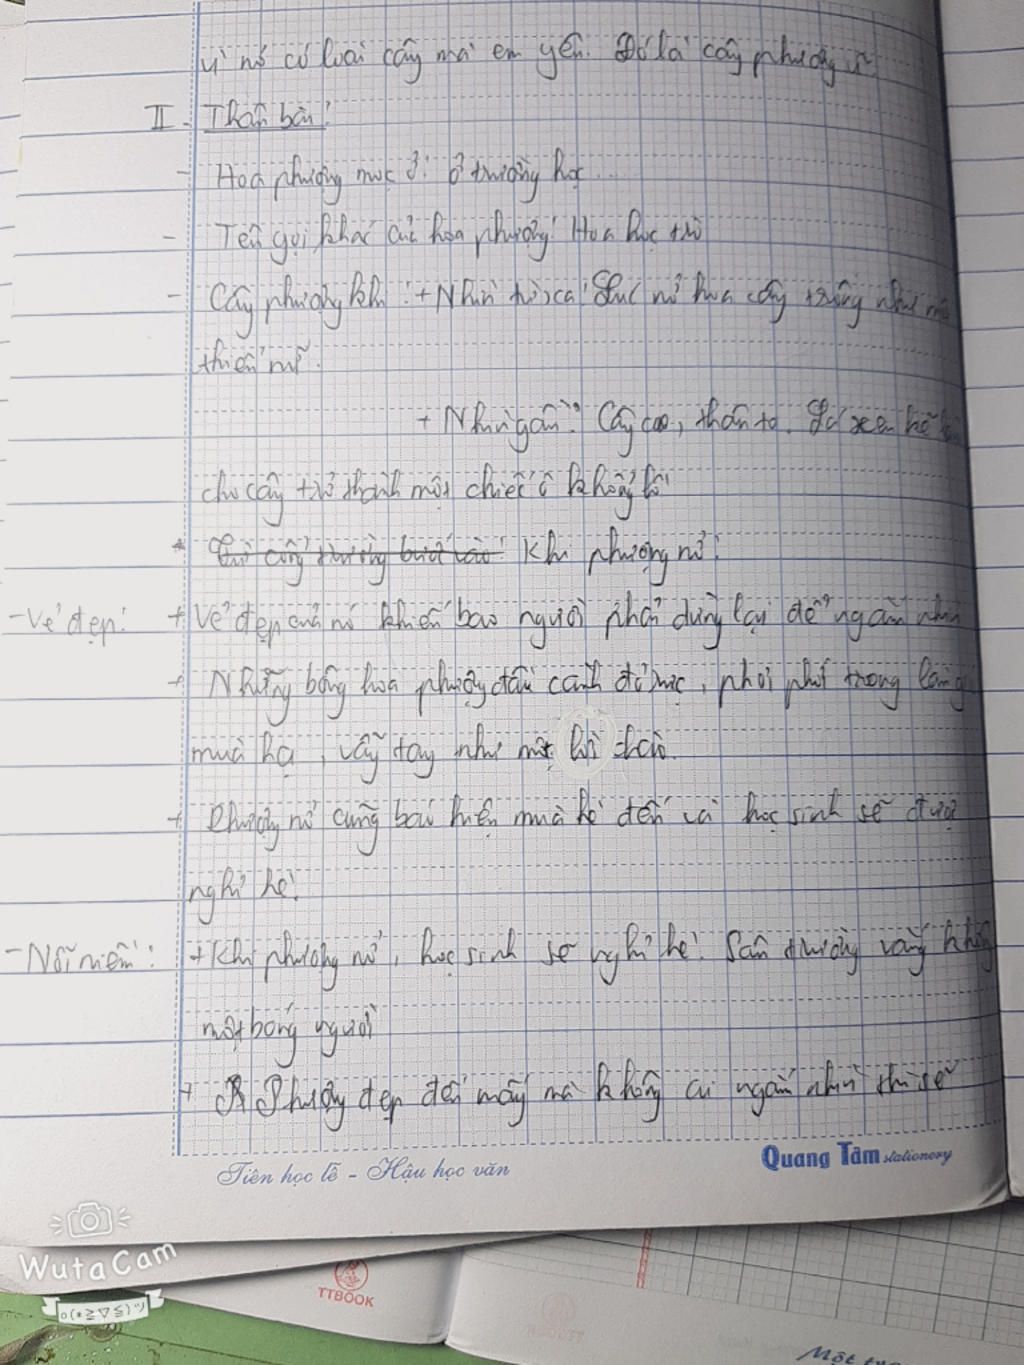 vì nó có loài cây mà em yêu. Đó là cây phượng vĩ
II - Thân bài:
- Hoa phượng mọc ở: ở trường học...
- Tên gọi khác của hoa phượng: Hoa học trò
- Cây phượng khi: + Nhìn từ xa: Lúc nở hoa cây trông như
thiên nữ.
+ Nhìn gần: Cây cao, thân to. xen kẽ
cho cây trở thành một chiếc ô khổng lồ
* Khi phượng nở:
- Vẻ đẹp: + Vẻ đẹp của nó khiến bao người phải dừng lại để ngắm nhìn
+ Những bông hoa phượng đầu cành đỏ rực, phơi phới trong
mùa hạ, vẫy tay như một lời chào.
+ Phượng nở cũng báo hiệu mùa hè đến và học sinh sẽ được
nghỉ hè.
- Nỗi niềm: + Khi phượng nở, học sinh sẽ nghỉ hè. Sân trường vắng không
một bóng người
+ Phượng đẹp đến mấy mà không ai ngắm nhìn thì sẽ
Tiên học lễ - Hậu học văn
Quang Tâm stationery
WutaCam
TTBOOK